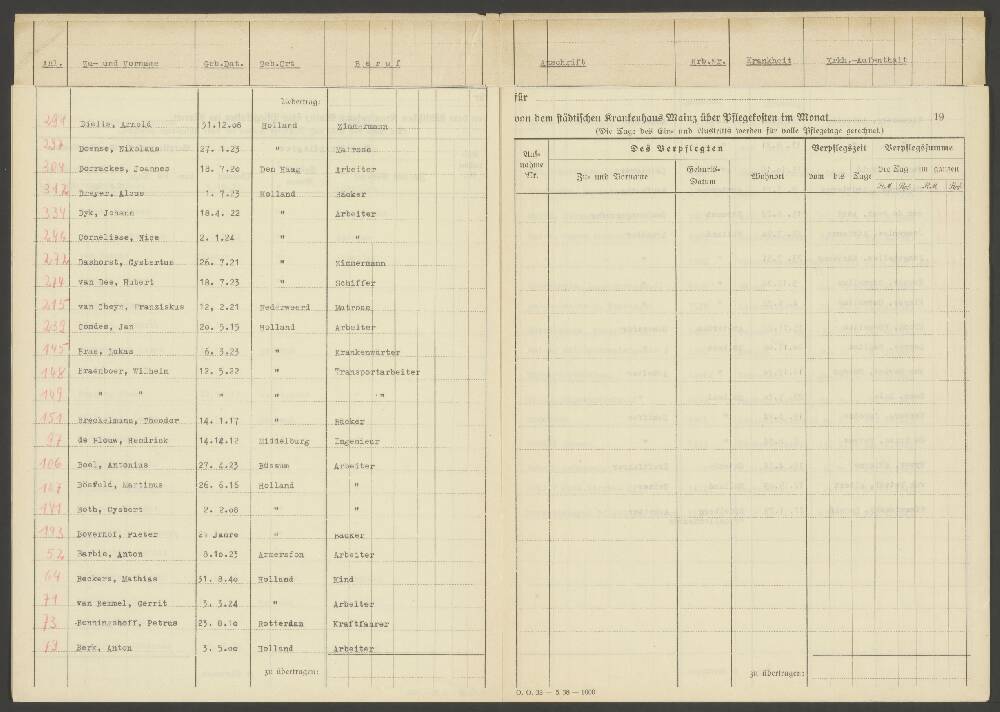 Anl. Zu- und Vorname Geb.Dat. Geb.Ort Beruf Anschrift Krb.Nr. Krankheit Krkh.-Aufenthalt
Uebertrag:
für
von dem städtischen Krankenhaus Mainz über Pflegekosten im Monat 19
(Die Tage des Ein- und Austritts werden für volle Pflegetage gerechnet.)
Auf-nahme Nr. Des Verpflegten Verpflegszeit Verpflegssumme
Zu- und Vorname Geburts-Datum Wohnort vom bis Tage die Tag im ganzen
RM Rpf RM Rpf
291 Dielis, Arnold 31.12.08 Holland Zimmermann
297 Doense, Nikolaus 27. 1.23 " Matrose
304 Dorrackes, Joannes 18. 7.20 Den Haag Arbeiter
312 Dreyer, 1. 7.23 Holland Bäcker
334 Dyk, Johann 18.4. 22 " Arbeiter
246 Corneliese, Nico 2. 1.24 " "
272 Dashorst, Gysbertus 26. 7.21 " Zimmermann
274 van Dee, Hubert 18. 7.23 " Schiffer
215 van Cheyn, Franziskus 12. 2.21 Nederweerd Matrose
239 Condes, Jan 20. 5.15 Holland Arbeiter
145 Bras, Lukas 6. 3.23 " Krankenwärter
148 Braenboer, Wilhelm 12. 5.22 " Transportarbeiter
149 " " "
151 Breckelmans, Theodor 14. 1.17 " Bäcker
97 de Blouw, Hendrick 14.12.12 Middelburg Ingenieur
106 Boel, Antonius 27. 4.23 Büssum Arbeiter
127 Bösfeld, Martinus 26. 6.16 Holland "
141 Both, Gysbert 2. 2.08 " "
193 Boverhof, Pieter Jahre " Bäcker
52 Barbie, Anton 8.10.23 Armersfon Arbeiter
64 Beckers, Mathias 31. 8.40 Holland Kind
71 van Bemmel, Gerrit 3. 3.24 " Arbeiter
73 Benningshoff, Petrus 23. 8.10 Rotterdam Kraftfahrer
79 Berk, Anton 3. 5.00 Holland Arbeiter
zu übertragen: zu übertragen:
O. O. 32 — 5. 38 — 1000